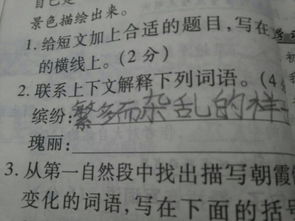 景色描绘出来。
1.给短文加上合适的题目,写在
的横线上。(2分)
2.联系上下文解释下列词语。(4
缤纷:繁多而杂乱的样子
瑰丽:
3.从第一自然段中找出描写朝霞
变化的词语,写在下面的括号